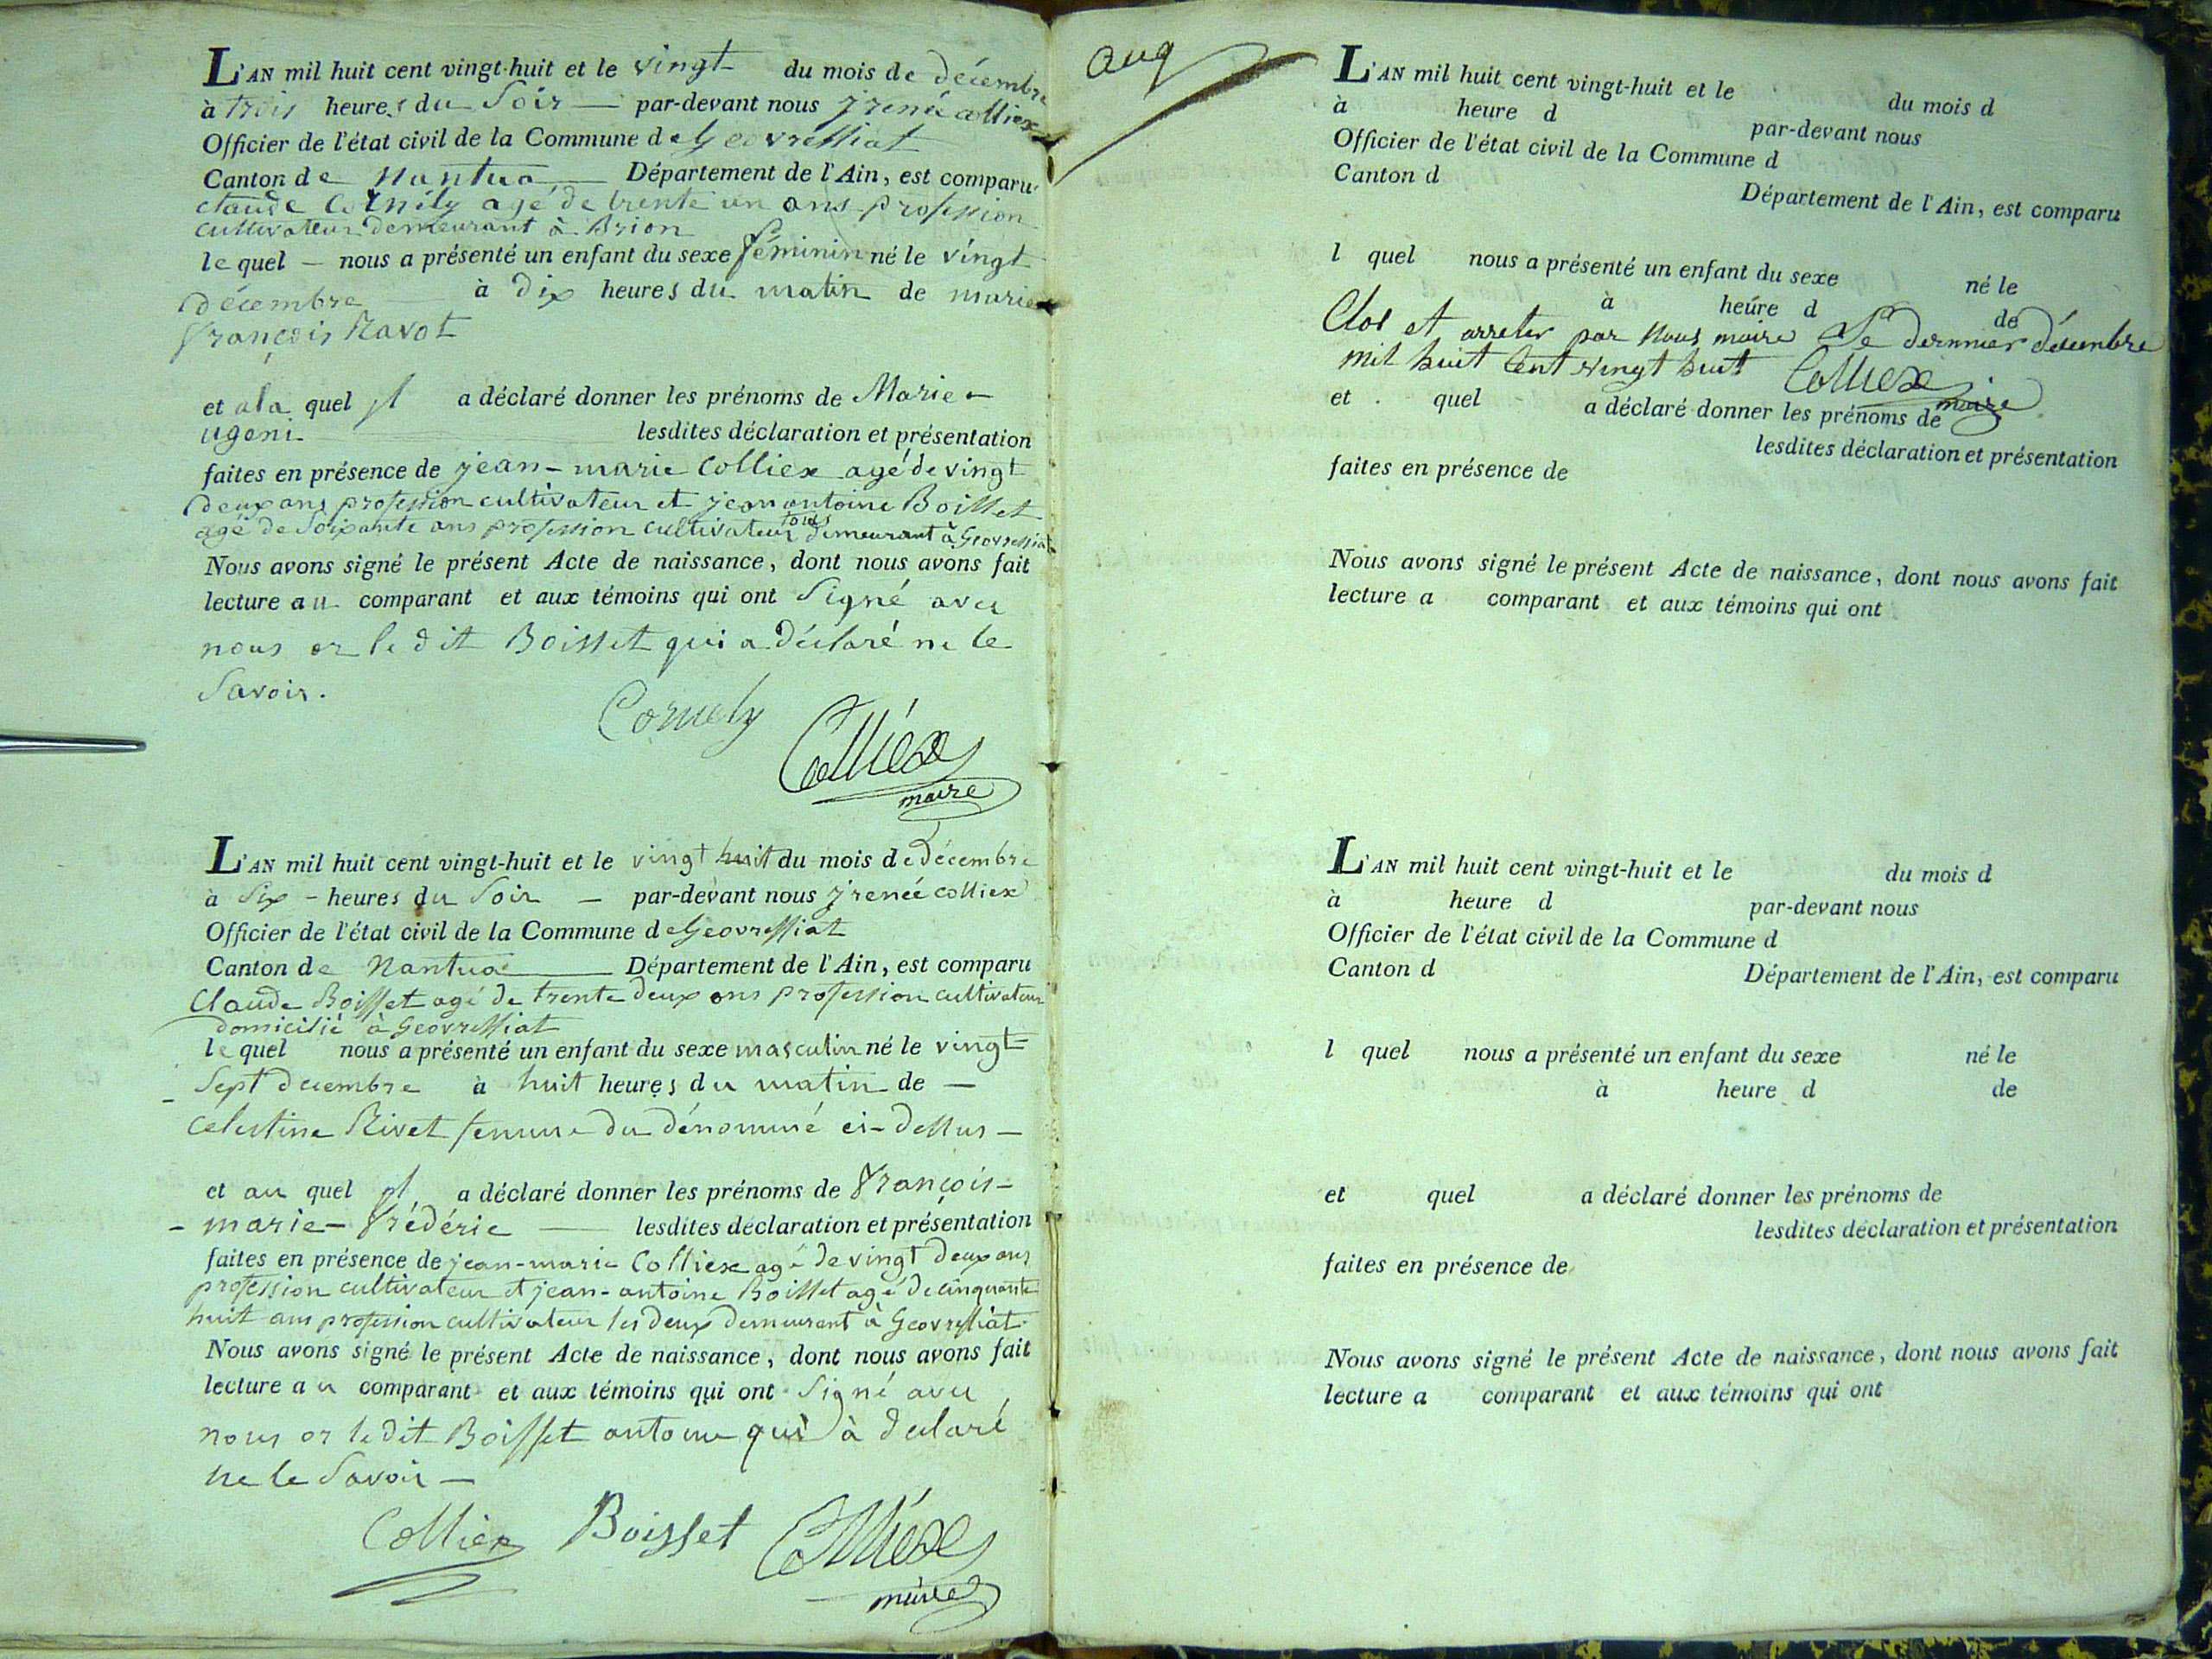 L'AN mil huit cent vingt-huit et le vingt du mois de décembre
à trois heures du Soir — par-devant nous j renée colliex
Officier de l'état civil de la Commune de Geovressiat
Canton de Nantua — Département de l'Ain, est comparu
claude Cornély agé de trente un ans profession
cultivateur demeurant à Brion
lequel — nous a présenté un enfant du sexe féminin né le vingt
décembre à dix heures du matin de marie
françois Ravot
et a la quel il a déclaré donner les prénoms de Marie –
ugeni lesdites déclaration et présentation
faites en présence de jean-marie Colliex agé de vingt
deux ans profession cultivateur et jean antoine Boisset
agé de Soixante ans profession cultivateur tous demeurant à Geovressiat
Nous avons signé le présent Acte de naissance, dont nous avons fait
lecture au comparant et aux témoins qui ont Signé avec
nous or le dit Boisset qui a déclaré ne le
Savoir.
Cornely
Colliex
maire
L'AN mil huit cent vingt-huit et le vingt huit du mois de décembre
à Six – heures du Soir — par-devant nous j renée colliex
Officier de l'état civil de la Commune de Geovressiat
Canton de Nantua — Département de l'Ain, est comparu
Claude Boisset agé de trente deux ans profession cultivateur
domicilié à Geovressiat
lequel nous a présenté un enfant du sexe masculin né le vingt
Sept decembre à huit heures du matin de —
Celestine Rivet femme du dénommé ci-dessus —
et au quel il a déclaré donner les prénoms de françois-
– marie – frédéric — lesdites déclaration et présentation
faites en présence de jean-marie Colliex agé de vingt deux ans
profession cultivateur et jean-antoine Boisset agé de cinquante
huit ans profession cultivateur les deux demeurant à Geovressiat.
Nous avons signé le présent Acte de naissance, dont nous avons fait
lecture au comparant et aux témoins qui ont Signé avec
nous or le dit Boisset antoine qui à declaré
ne le Savoir —
Colliex Boisset Colliex
maire
aug
L'AN mil huit cent vingt-huit et le du mois d
à heure d par-devant nous
Officier de l'état civil de la Commune d
Canton d Département de l'Ain, est comparu
l quel nous a présenté un enfant du sexe né le
à heure d de
Clos et arreter par Nous maire Le dernnier décembre
mil huit Cent vingt huit Colliex
maire
et quel a déclaré donner les prénoms de
lesdites déclaration et présentation
faites en présence de
Nous avons signé le présent Acte de naissance, dont nous avons fait
lecture a comparant et aux témoins qui ont
L'AN mil huit cent vingt-huit et le du mois d
à heure d par-devant nous
Officier de l'état civil de la Commune d
Canton d Département de l'Ain, est comparu
l quel nous a présenté un enfant du sexe né le
à heure d de
et quel a déclaré donner les prénoms de
lesdites déclaration et présentation
faites en présence de
Nous avons signé le présent Acte de naissance, dont nous avons fait
lecture a comparant et aux témoins qui ont